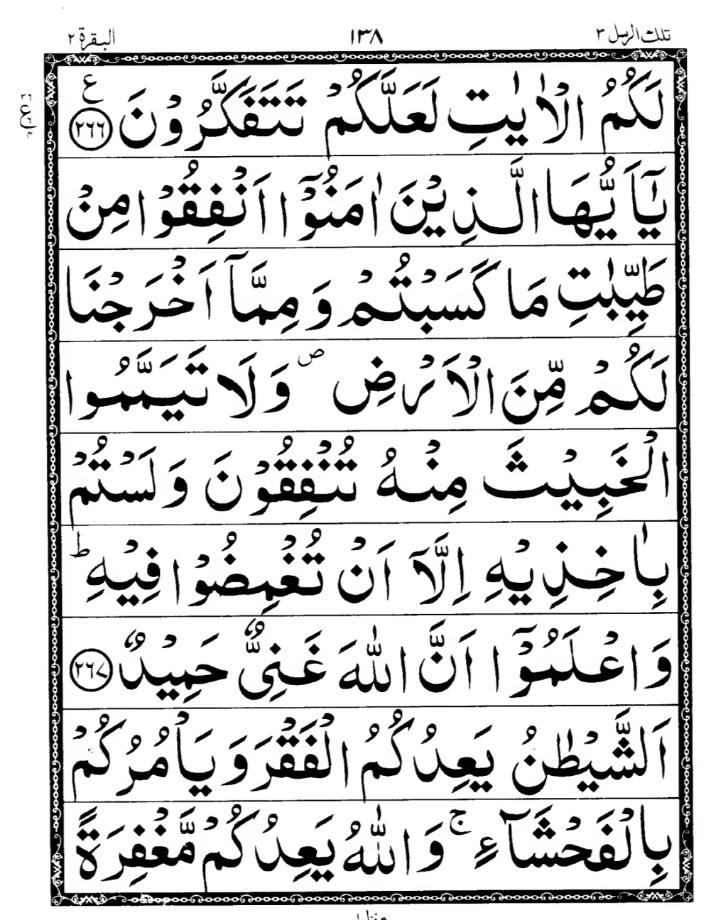 تلك الرسل ٣ ١٣٨ البقرة ٢
لَكُمُ الْاٰيٰتِ لَعَلَّكُمْ تَتَفَكَّرُوْنَ ع ٢٦٦
يٰٓاَيُّهَا الَّذِيْنَ اٰمَنُوْٓا اَنْفِقُوْا مِنْ
طَيِّبٰتِ مَا كَسَبْتُمْ وَ مِمَّآ اَخْرَجْنَا
لَكُمْ مِّنَ الْاَرْضِ ص وَلَا تَيَمَّمُوا
الْخَبِيْثَ مِنْهُ تُنْفِقُوْنَ وَلَسْتُمْ
بِاٰخِذِيْهِ اِلَّآ اَنْ تُغْمِضُوْا فِيْهِ ط
وَاعْلَمُوْٓا اَنَّ اللّٰهَ غَنِيٌّ حَمِيْدٌ ٢٦٧
اَلشَّيْطٰنُ يَعِدُكُمُ الْفَقْرَ وَيَاْمُرُكُمْ
بِالْفَحْشَآءِ ج وَاللّٰهُ يَعِدُكُمْ مَّغْفِرَةً